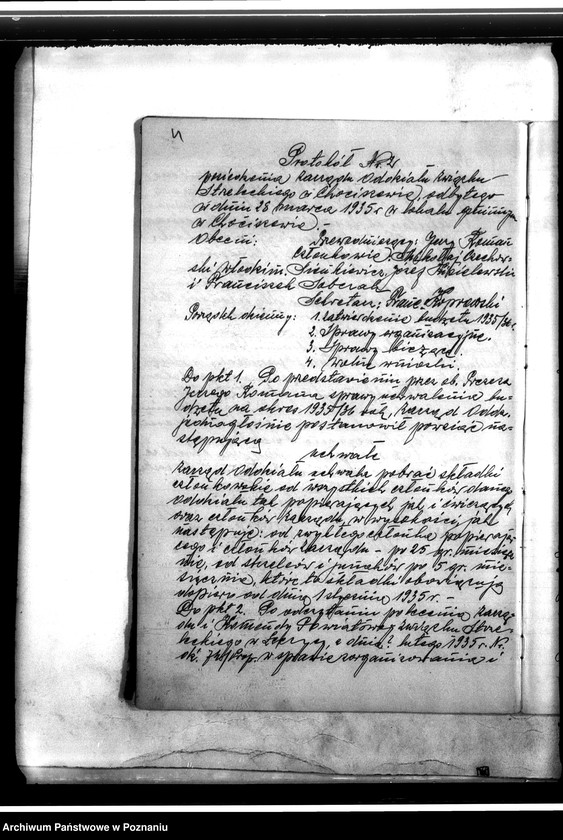 4
Protokół No. 2
posiedzenia zarządu Oddziału Związku
Strzeleckiego w Chociszewie, odbytego
w dniu 28 marca 1935 r w lokalu gminnym
w Chociszewie. -
Obecni: Przewodniczący: Jerzy Koman
Członkowie:
Sienkiewicz, Józef
i Franciszek
Sekretarz: Franc.
Porządek dzienny: 1. zatwierdzenie budżetu 1935/36 r.
2. Sprawy organizacyjne.
3. Sprawy bieżące i
4. Wolne wnioski.
Do pkt 1. Po przedstawieniu przez ob. Prezesa
Jerzego Komana sprawy uchwalenia bu-
dżetu na okres 1935/36 zarząd Oddz.
jednogłośnie postanowił powziąć na-
stępującą
uchwałę
Zarząd Oddziału uchwala pobrać składki
członkowskie od wszystkich członków
oddziału tak popierających jak i ćwiczących
oraz członków zarządu, w wysokości jak
następuje: od zwykłego członka popierają-
cego i członków zarządu - po 25 gr. miesięcz-
nie, od strzelców i junaków po 5 gr. mie-
sięcznie, które to składki obowiązują
dopiero od dnia 1 stycznia 1935 r. -
Do pkt 2. Po odczytaniu polecenia zarzą-
du i Komendy Powiatowej Związku Strze-
leckiego w z dnia lutego 1935 r. Nr.
w sprawie zorganizowania i
Archiwum Państwowe w Poznaniu